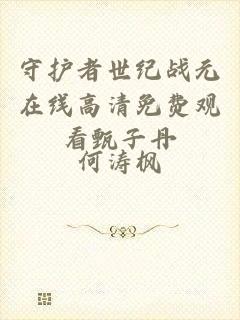 守护者世纪战元
在线高清免费观
看甄子丹
何涛枫